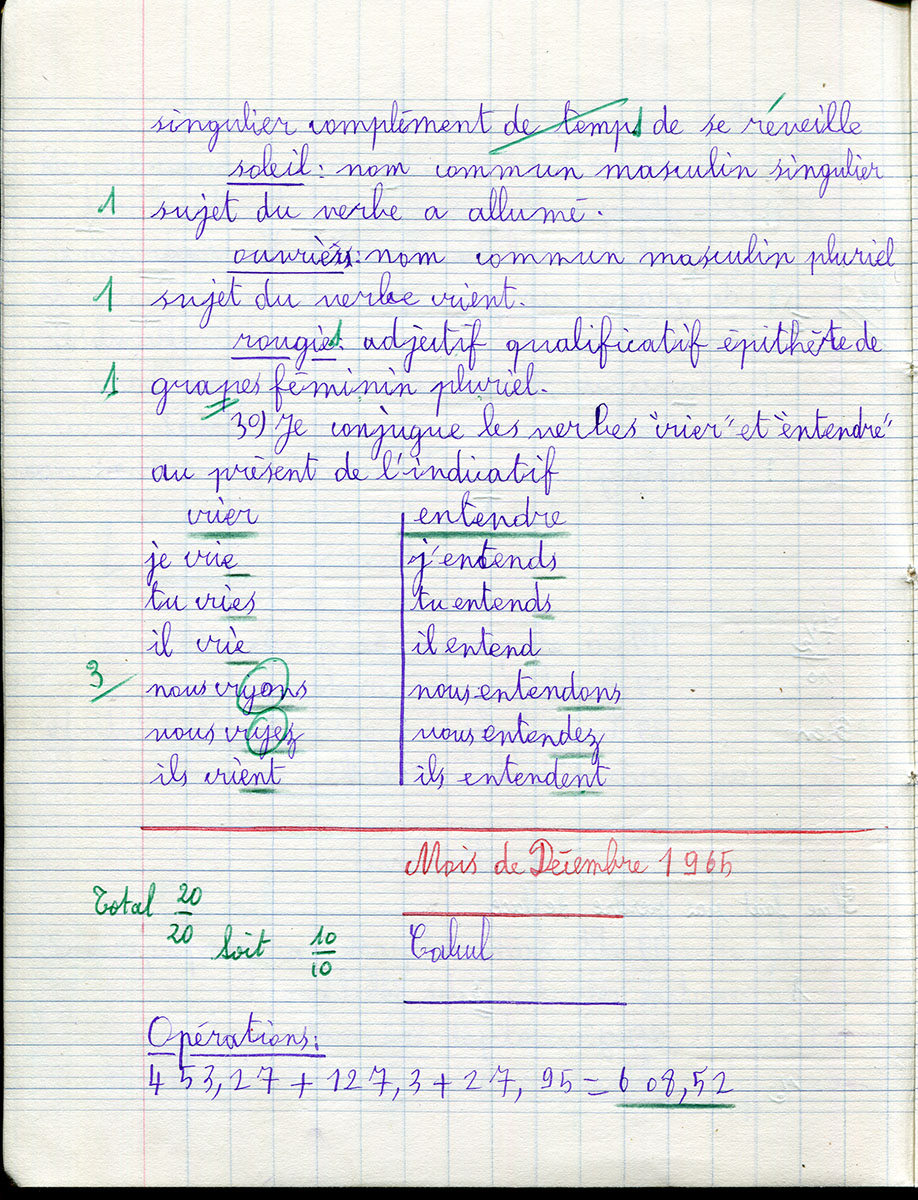 singulier complément de temps de se réveille
soleil : nom commun masculin singulier
1 sujet du verbe a allumé.
ouvriers : nom commun masculin pluriel
1 sujet du verbe crient.
rougies : adjectif qualificatif épithète de
1 grapes féminin pluriel.
3º) Je conjugue les verbes "crier" et "entendre"
au présent de l'indicatif
crier entendre
je crie j'entends
tu cries tu entends
il crie il entend
3 nous cryons nous entendons
vous cryez vous entendez
ils crient ils entendent
Mois de Décembre 1965
Total 20/20 soit 10/10
Calcul
Opérations :
453,27 + 127,3 + 27,95 = 608,52